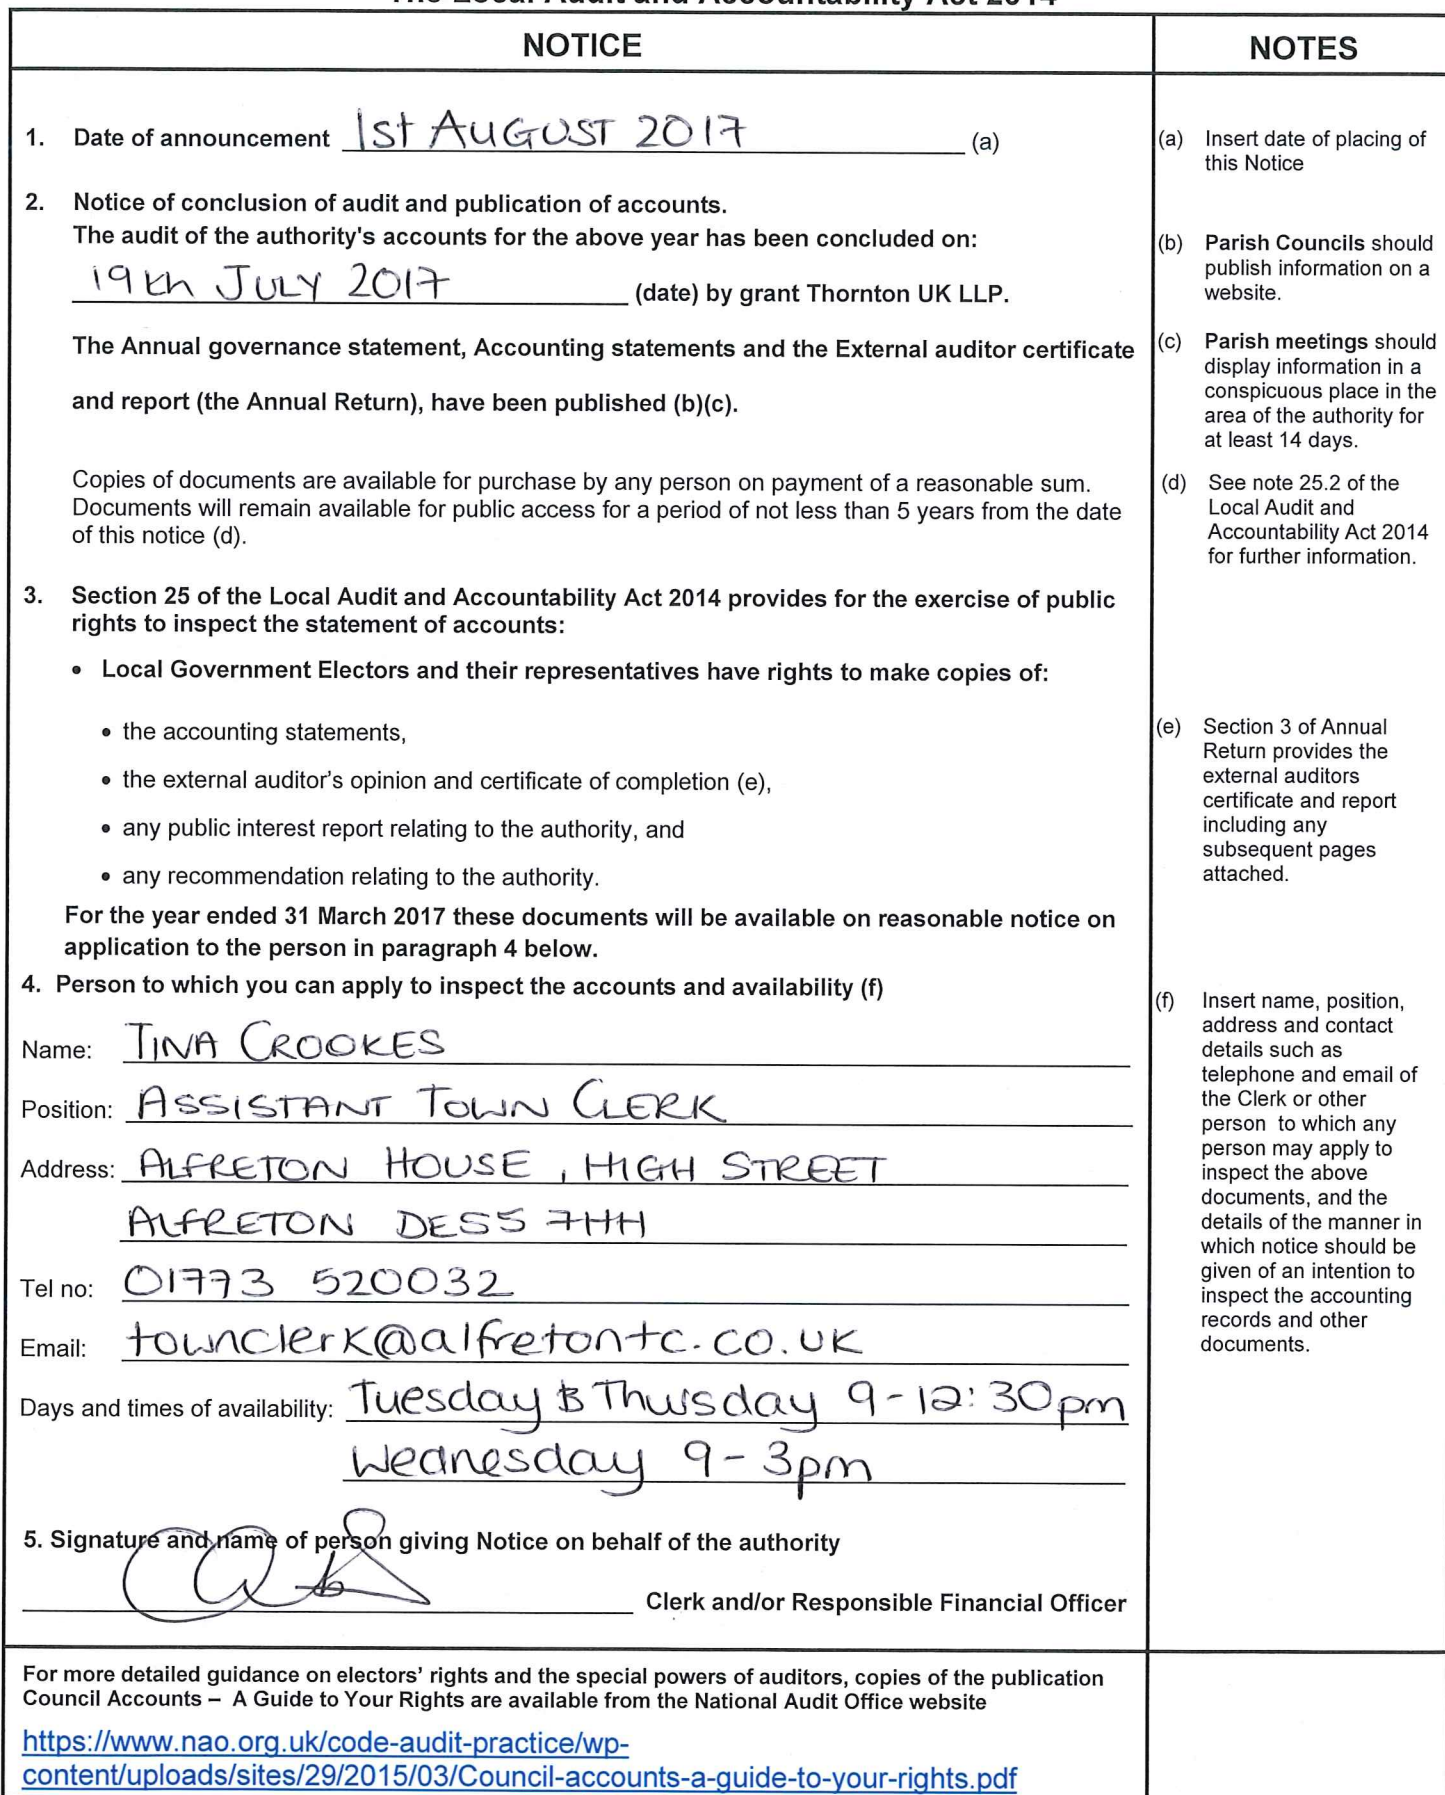 The Local Audit and Accountability Act 2014
NOTICE
1. Date of announcement 1st AUGUST 2017 (a)
2. Notice of conclusion of audit and publication of accounts.
The audit of the authority's accounts for the above year has been concluded on:
19th JULY 2017 (date) by grant Thornton UK LLP.
The Annual governance statement, Accounting statements and the External auditor certificate
and report (the Annual Return), have been published (b)(c).
Copies of documents are available for purchase by any person on payment of a reasonable sum.
Documents will remain available for public access for a period of not less than 5 years from the date
of this notice (d).
3. Section 25 of the Local Audit and Accountability Act 2014 provides for the exercise of public
rights to inspect the statement of accounts:
• Local Government Electors and their representatives have rights to make copies of:
• the accounting statements,
• the external auditor's opinion and certificate of completion (e),
• any public interest report relating to the authority, and
• any recommendation relating to the authority.
For the year ended 31 March 2017 these documents will be available on reasonable notice on
application to the person in paragraph 4 below.
4. Person to which you can apply to inspect the accounts and availability (f)
Name: TINA CROOKES
Position: ASSISTANT TOWN CLERK
Address: ALFRETON HOUSE, HIGH STREET
ALFRETON DE55 7HH
Tel no: 01773 520032
Email: townclerk@alfretontc.co.uk
Days and times of availability: Tuesday & Thursday 9-12:30pm
Wednesday 9-3pm
5. Signature and name of person giving Notice on behalf of the authority
Clerk and/or Responsible Financial Officer
For more detailed guidance on electors' rights and the special powers of auditors, copies of the publication
Council Accounts – A Guide to Your Rights are available from the National Audit Office website
https://www.nao.org.uk/code-audit-practice/wp-
content/uploads/sites/29/2015/03/Council-accounts-a-guide-to-your-rights.pdf
NOTES
(a) Insert date of placing of
this Notice
(b) Parish Councils should
publish information on a
website.
(c) Parish meetings should
display information in a
conspicuous place in the
area of the authority for
at least 14 days.
(d) See note 25.2 of the
Local Audit and
Accountability Act 2014
for further information.
(e) Section 3 of Annual
Return provides the
external auditors
certificate and report
including any
subsequent pages
attached.
(f) Insert name, position,
address and contact
details such as
telephone and email of
the Clerk or other
person to which any
person may apply to
inspect the above
documents, and the
details of the manner in
which notice should be
given of an intention to
inspect the accounting
records and other
documents.